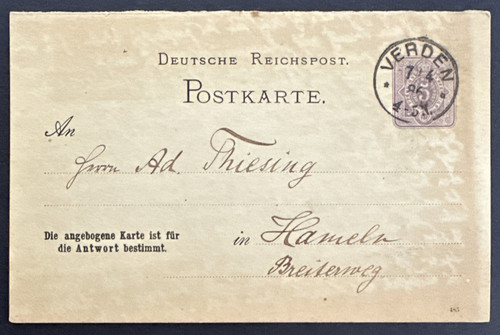 DEUTSCHE REICHSPOST.
POSTKARTE.
VERDEN
7/4
86
4-5N.
5
An
Herrn Ad. Thiesing
Die angebogene Karte ist für
die Antwort bestimmt.
in Hameln
Breiterweg
485